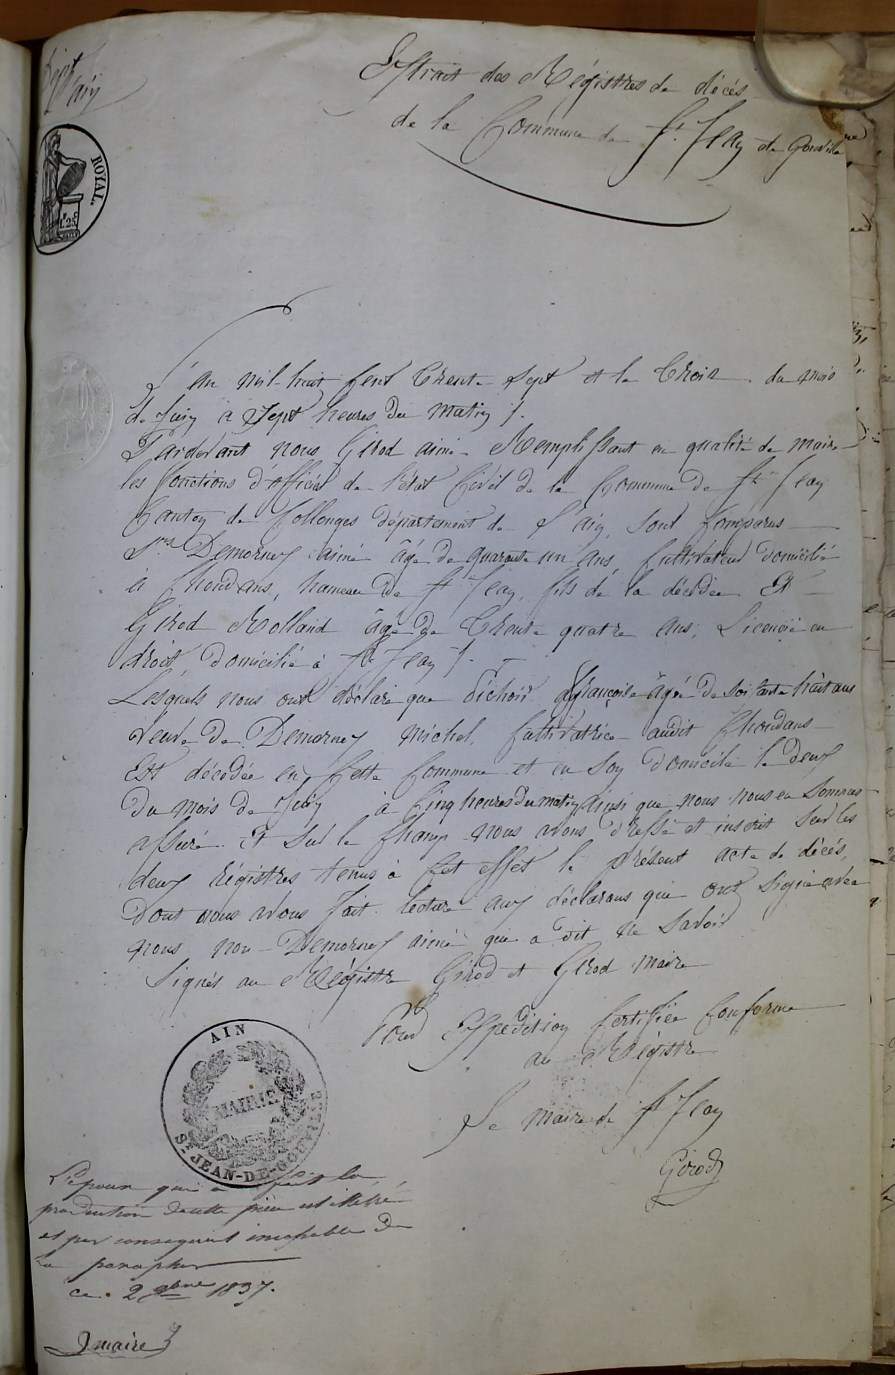 Extrait des Régistres de décès
de la Commune de St. Jean de Gonville
ROYAL.
1.25
L'an mil-huit Cent trente Sept et le trois du mois
de Juin à Sept heures du matin /.
Pardevant nous Girod ainé Remplissant en qualité de maire
les fonctions d'officier de l'état Civil de la Commune de St Jean
Canton de Collonges département de l'ain, sont Comparus
Demornex ainé âgé de quarante un ans Cultivateur domicilié
à Choudans, hameau de St Jean, fils de la décédée Et
Girod Rolland âgé de trente quatre ans, Licencié en
droit, domicilié à St Jean /.
Lesquels nous ont déclaré que françoise âgée de soixante huit ans
veuve de Demornex michel, Cultivatrice audit Choudans
Est décédée en Cette Commune et en son domicile le deux
du mois de Juin à Cinq heures du matin ainsi que nous nous en Sommes
assuré. Et sur le Champ nous avons dressé et inscrit sur les
deux régistres tenus à Cet effet le présent acte de décès,
dont nous avons fait lecture aux déclarans qui ont signé avec
nous non Demornex ainé qui a dit ne savoir
Signés au Régistre Girod et Girod maire
Pour Expédition Certifiée Conforme
au Régistre
Le maire de St Jean
Girod
AIN
MAIRIE
ST. JEAN-DE-GONVILLE
L'époux qui a fait la
production de cette pièce est illitéré
et par conséquent incapable de
la parapher
ce 2 9bre 1837.
maire